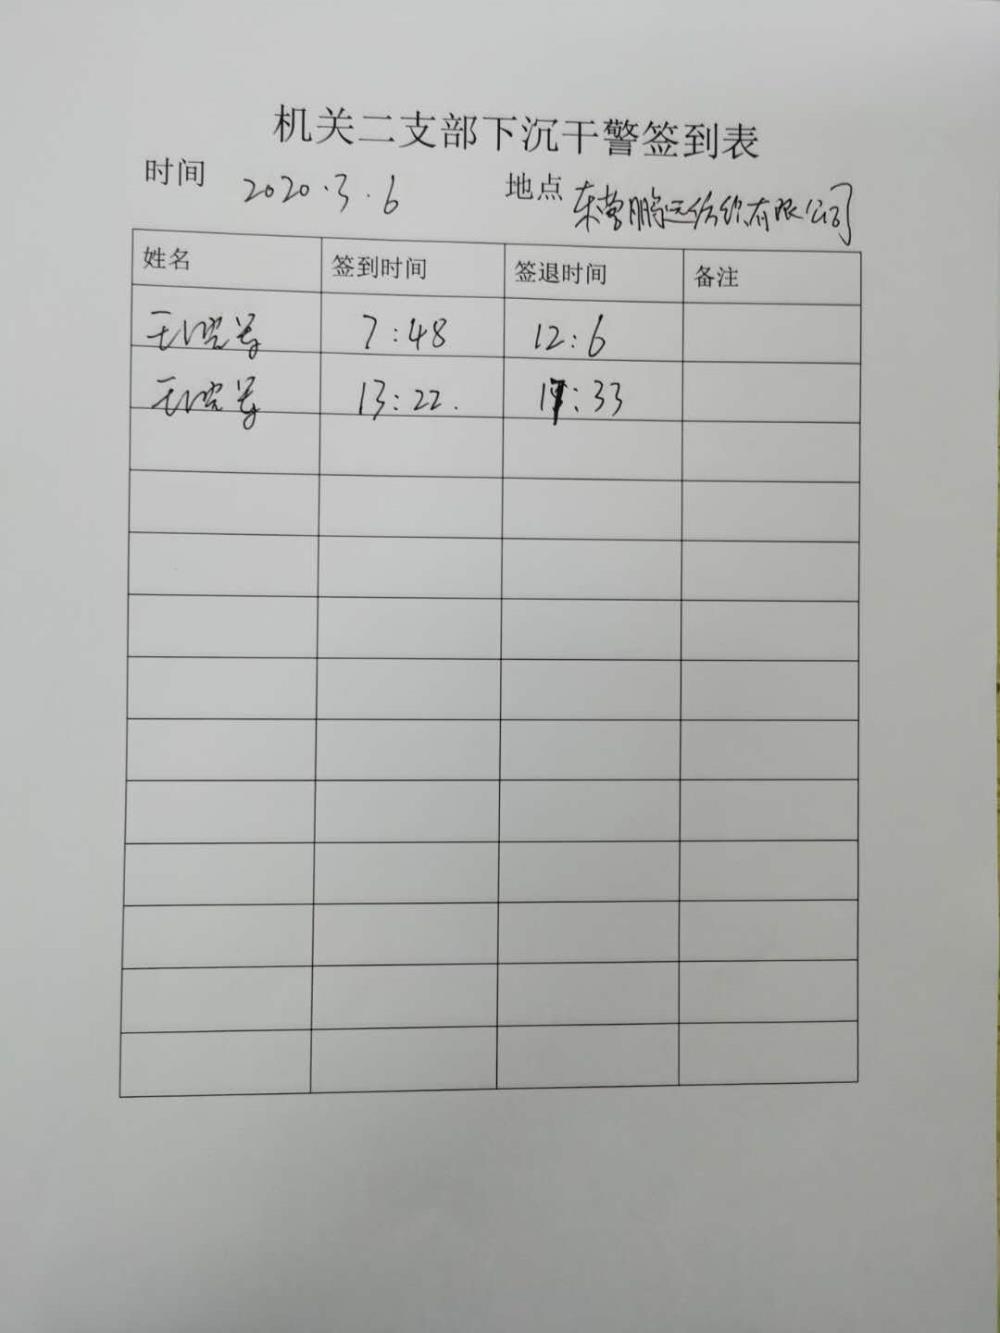 机关二支部下沉干警签到表
时间 2020.3.6 地点 东营鹏远纺织有限公司
姓名 签到时间 签退时间 备注
7:48 12:6
13:22. 17:33